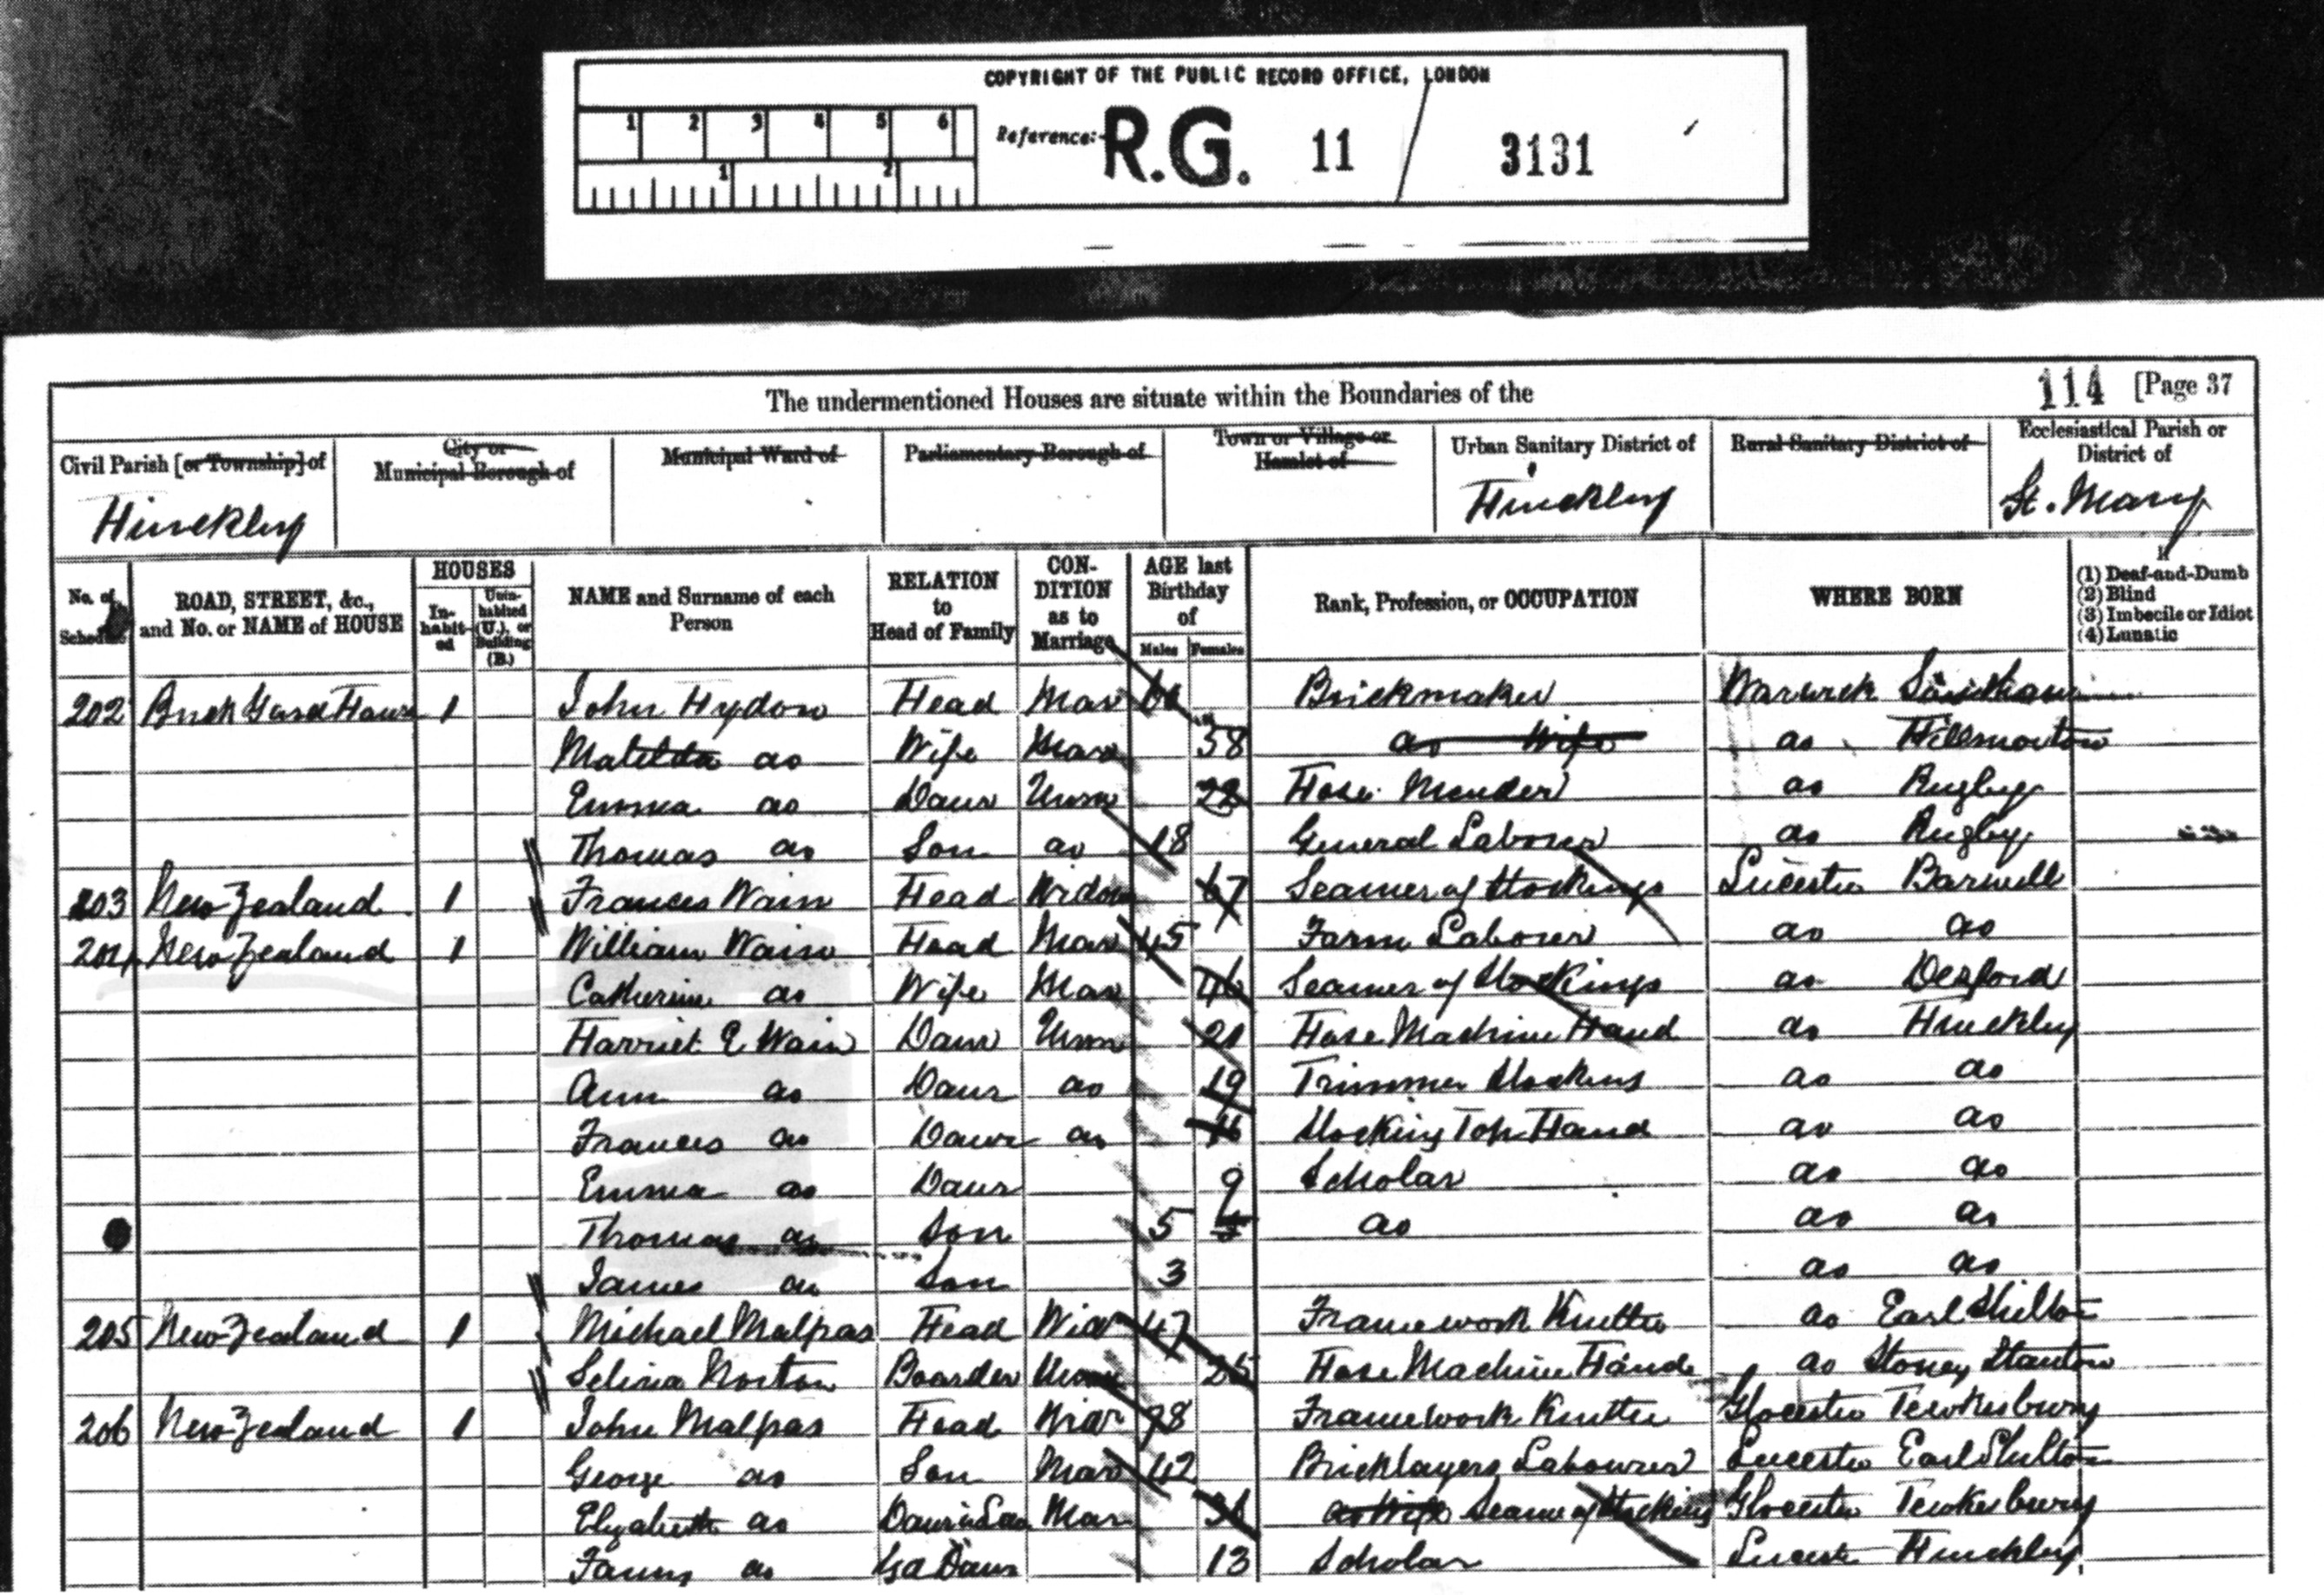 COPYRIGHT OF THE PUBLIC RECORD OFFICE, LONDON
1 2 3 4 5 6
1 2
Reference:- R.G. 11 / 3131
The undermentioned Houses are situate within the Boundaries of the 114 [Page 37
Civil Parish [or Township] of City or Municipal Borough of Municipal Ward of Parliamentary Borough of Town or Village or Hamlet of Urban Sanitary District of Rural Sanitary District of Ecclesiastical Parish or District of
Hinckley Hinckley St. Mary
No. of Schedule ROAD, STREET, &c., and No. or NAME of HOUSE HOUSES In-habit-ed Unin-habited (U.), or Building (B.) NAME and Surname of each Person RELATION to Head of Family CON-DITION as to Marriage AGE last Birthday of Males Females Rank, Profession, or OCCUPATION WHERE BORN (1) Deaf-and-Dumb (2) Blind (3) Imbecile or Idiot (4) Lunatic
202 Brick Yard House 1 John Hydon Head Mar Brickmaker Warwick
Matilda do Wife Mar 58 do Wife do Hillmorton
Emma do Daur Unm 22 Hose Mender do Rugby
Thomas do Son do 18 General Labourer do Rugby
203 New Zealand 1 Frances Wain Head Widow 67 Seamer of Stockings Leicester Barwell
204 New Zealand 1 William Wain Head Mar 45 Farm Labourer do do
Catherine do Wife Mar 46 Seamer of Stockings do Desford
Harriet E Wain Daur Unm 21 Hose Machine Hand do Hinckley
Ann do Daur do 19 Trimmer Stockings do do
Frances do Daur do 16 Stocking Top Hand do do
Emma do Daur 9 Scholar do do
Thomas do Son 5 5 do do do
James do Son 3 do do
205 New Zealand 1 Michael Malpas Head Widr 47 Framework Knitter do Earl Shilton
Selina Norton Boarder Unm 25 Hose Machine Hand do Stoney Stanton
206 New Zealand 1 John Malpas Head Widr 78 Framework Knitter Glocester Tewkesbury
George do Son Mar 42 Bricklayers Labourer Leicester Earl Shilton
Elizabeth do Daur in Law Mar do Wife Seamer of Stockings Glocester Tewkesbury
Fanny do Gd Daur 13 Scholar Leicester Hinckley